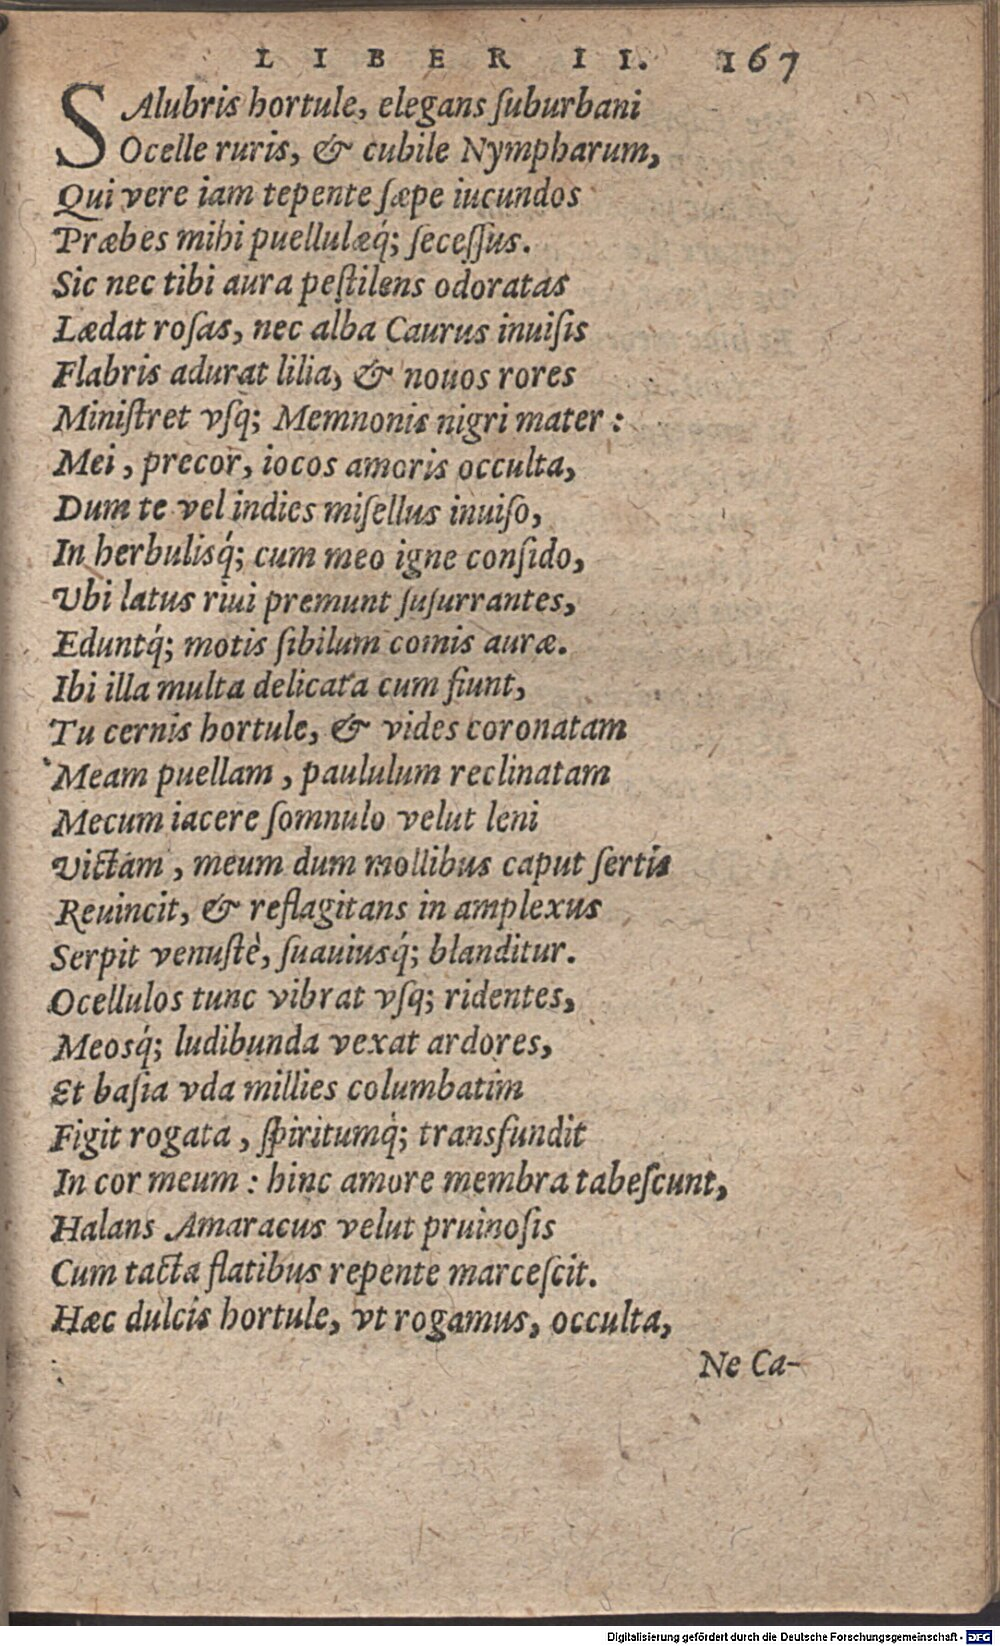 LIBER II. 167
SAlubris hortule, elegans ſuburbani
Ocelle ruris, & cubile Nympharum,
Qui vere iam tepente ſæpe iucundos
Præbes mihi puellulæq́; ſeceſſus.
Sic nec tibi aura peſtilens odoratas
Lædat roſas, nec alba Caurus inuiſis
Flabris adurat lilia, & nouos rores
Miniſtret vſq; Memnonis nigri mater:
Mei, precor, iocos amoris occulta,
Dum te vel indies miſellus inuiſo,
In herbulisq́; cum meo igne conſido,
Vbi latus riui premunt ſuſurrantes,
Eduntq́; motis ſibilum comis auræ.
Ibi illa multa delicata cum fiunt,
Tu cernis hortule, & vides coronatam
Meam puellam, paululum reclinatam
Mecum iacere ſomnulo velut leni
Victam, meum dum mollibus caput ſertis
Reuincit, & reflagitans in amplexus
Serpit venuſtè, ſuauiusq́; blanditur.
Ocellulos tunc vibrat vſq; ridentes,
Meosq́; ludibunda vexat ardores,
Et baſia vda millies columbatim
Figit rogata, ſpiritumq́; transfundit
In cor meum: hinc amore membra tabeſcunt,
Halans Amaracus velut pruinoſis
Cum tacta flatibus repente marceſcit.
Hæc dulcis hortule, vt rogamus, occulta,
Ne Ca-
Digitalisierung gefördert durch die Deutsche Forschungsgemeinschaft - DFG